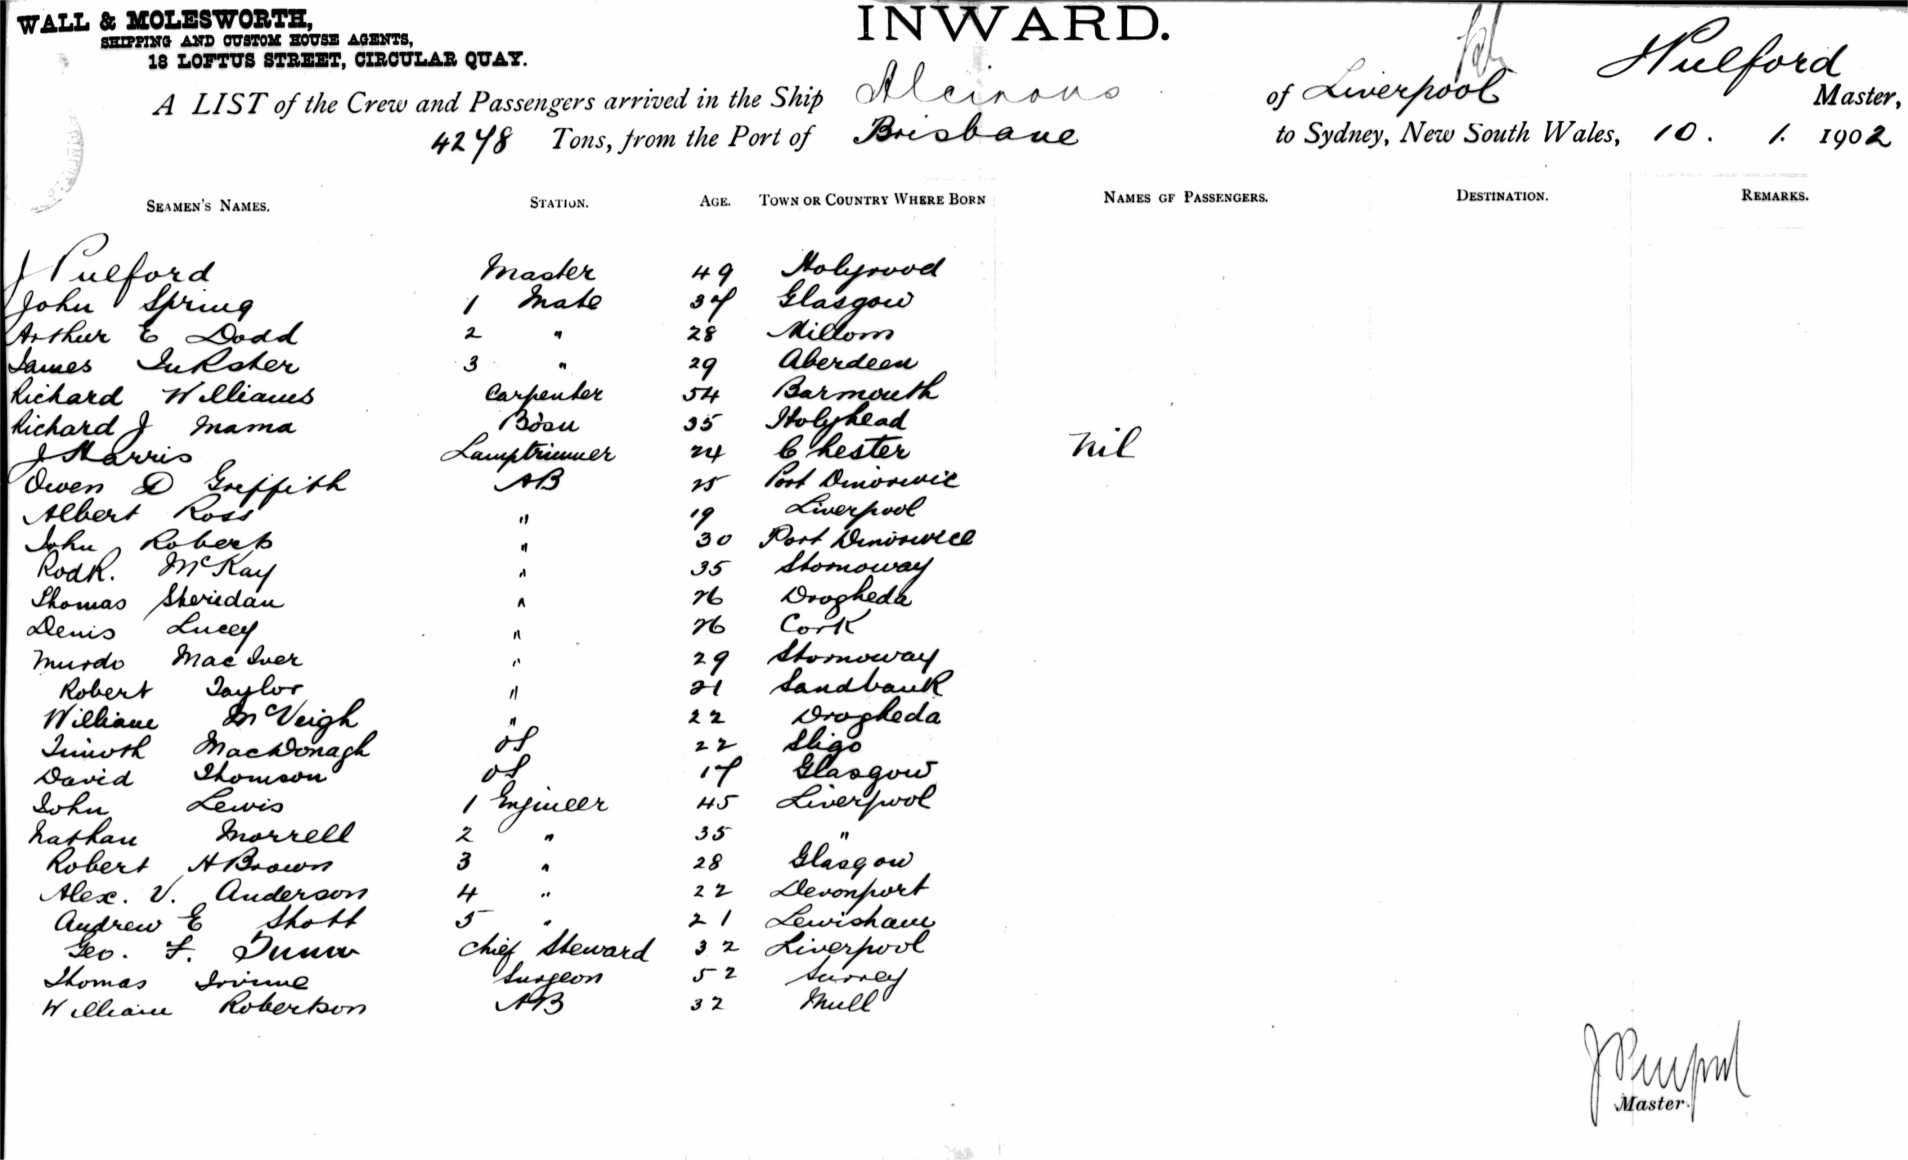 WALL & MOLESWORTH,
SHIPPING AND CUSTOM HOUSE AGENTS,
18 LOFTUS STREET, CIRCULAR QUAY.
INWARD.
A LIST of the Crew and Passengers arrived in the Ship Alcinous of Liverpool J Pulford Master,
4278 Tons, from the Port of Brisbane to Sydney, New South Wales, 10. 1. 1902
SEAMEN'S NAMES. STATION. AGE. TOWN OR COUNTRY WHERE BORN NAMES OF PASSENGERS. DESTINATION. REMARKS.
J Pulford Master 49 Holywood
John Spring 1 Mate 37 Glasgow
Arthur E Dodd 2 " 28 Millom
James Inkster 3 " 29 Aberdeen
Richard Williams Carpenter 54 Barmouth
Richard J Mama Bosu 35 Holyhead
J Harris Lamptrimmer 24 Chester Nil
Owen D Griffith AB 25 Port Dinorwic
Albert Ross " 19 Liverpool
John Roberts " 30 Port Dinorwice
Rodk. McKay " 35 Stornoway
Thomas Sheridan " 26 Drogheda
Denis Lucey " 26 Cork
Murdo MacIver " 29 Stornoway
Robert Taylor " 21 Sandbank
William McVeigh " 22 Drogheda
Timoth MacDonagh OS 22 Sligo
David Thomson OS 17 Glasgow
John Lewis 1 Engineer 45 Liverpool
Nathan Morrell 2 " 35 "
Robert H Brown 3 " 28 Glasgow
Alex. V. Anderson 4 " 22 Devonport
Andrew E Shott 5 " 21 Lewisham
Geo. F. Chief Steward 32 Liverpool
Thomas Irvine Surgeon 52 Surrey
William Robertson AB 32 Mull
J Pulford
Master.